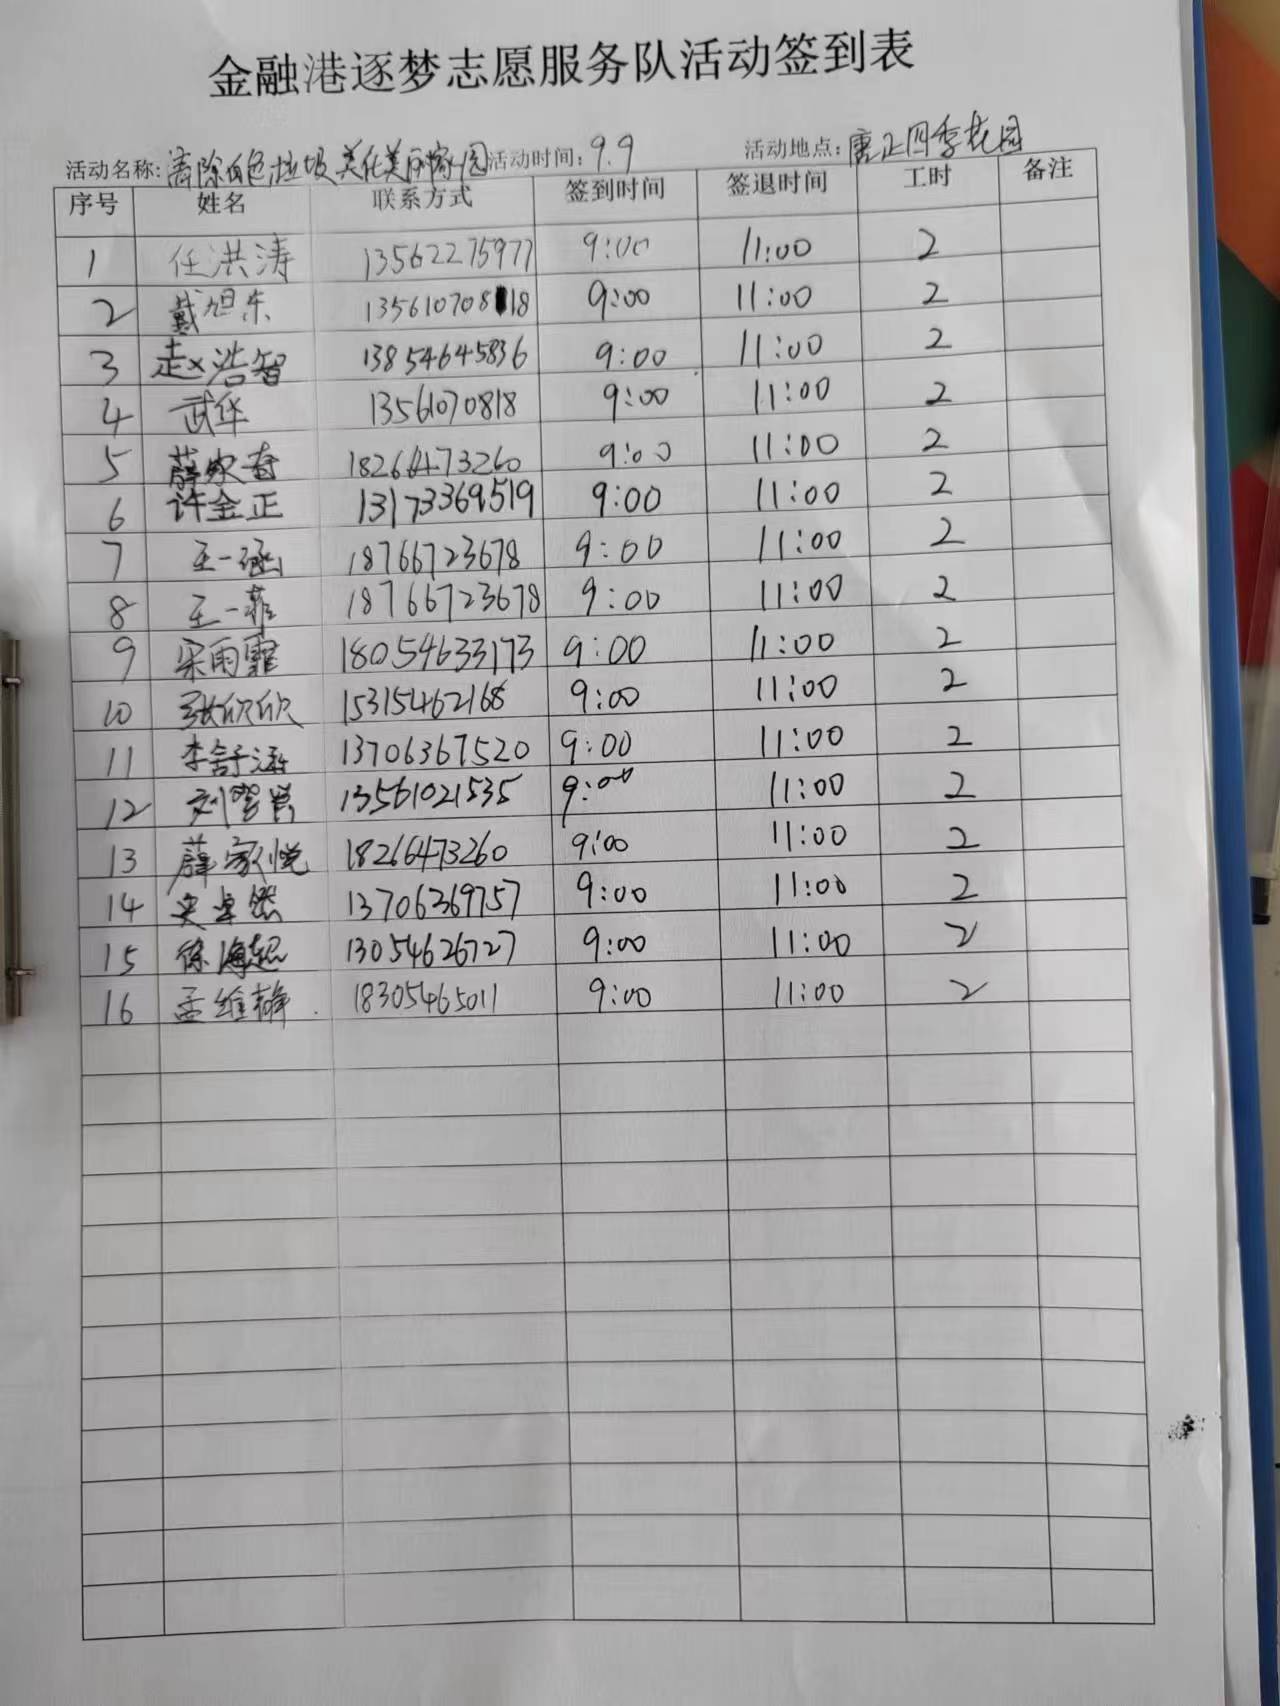 金融港逐梦志愿服务队活动签到表
活动名称: 清除白色垃圾 美化美丽家园 活动时间: 9.9 活动地点: 唐正四季花园
序号 姓名 联系方式 签到时间 签退时间 工时 备注
1 任洪涛 13562275977 9:00 11:00 2
2 戴旭东 13561070818 9:00 11:00 2
3 赵浩智 13854645836 9:00 11:00 2
4 武华 13561070818 9:00 11:00 2
5 薛家春 18266473260 9:00 11:00 2
6 许金正 13173369519 9:00 11:00 2
7 王一涵 18766723678 9:00 11:00 2
8 王一菲 18766723678 9:00 11:00 2
9 宋雨霏 18054633173 9:00 11:00 2
10 张欣欣 15315462168 9:00 11:00 2
11 李舒涵 13706367520 9:00 11:00 2
12 刘 13561021535 9:00 11:00 2
13 薛家悦 18266473260 9:00 11:00 2
14 安卓然 13706369757 9:00 11:00 2
15 徐海超 13054626727 9:00 11:00 2
16 孟维翰 18305465011 9:00 11:00 2